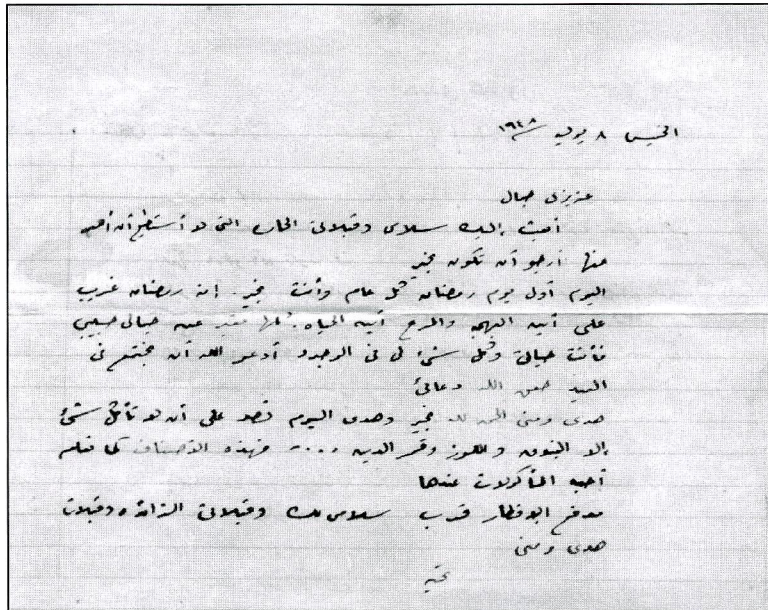 الخميس ٨ يوليه ١٩٤٨
عزيزى جمال
أبعث إليك سلامى وقبلاتى الحاره التى لا أستطيع أن أعبر
عنها أرجو أن تكون بخير
اليوم أول يوم رمضان كل عام وأنت بخير. إن رمضان غريب
على أين البهجه والمرح أين الحياه كلها عند جمالى حبيبى
فأنت حياتى وكل شئ لى فى الوجود أدعو الله أن نجتمع فى
العيد حقق الله دعائى
هدى ومنى الحمد لله بخير وهدى اليوم تصر على أن لا تأكل شئ
إلا البندق واللوز وقمر الدين .... فهذه الأصناف كما تعلم
أحب المأكولات عندها
مدفع الإفطار قرب سلامى لك وقبلاتى الزائده وقبلات
هدى ومنى
تحيه